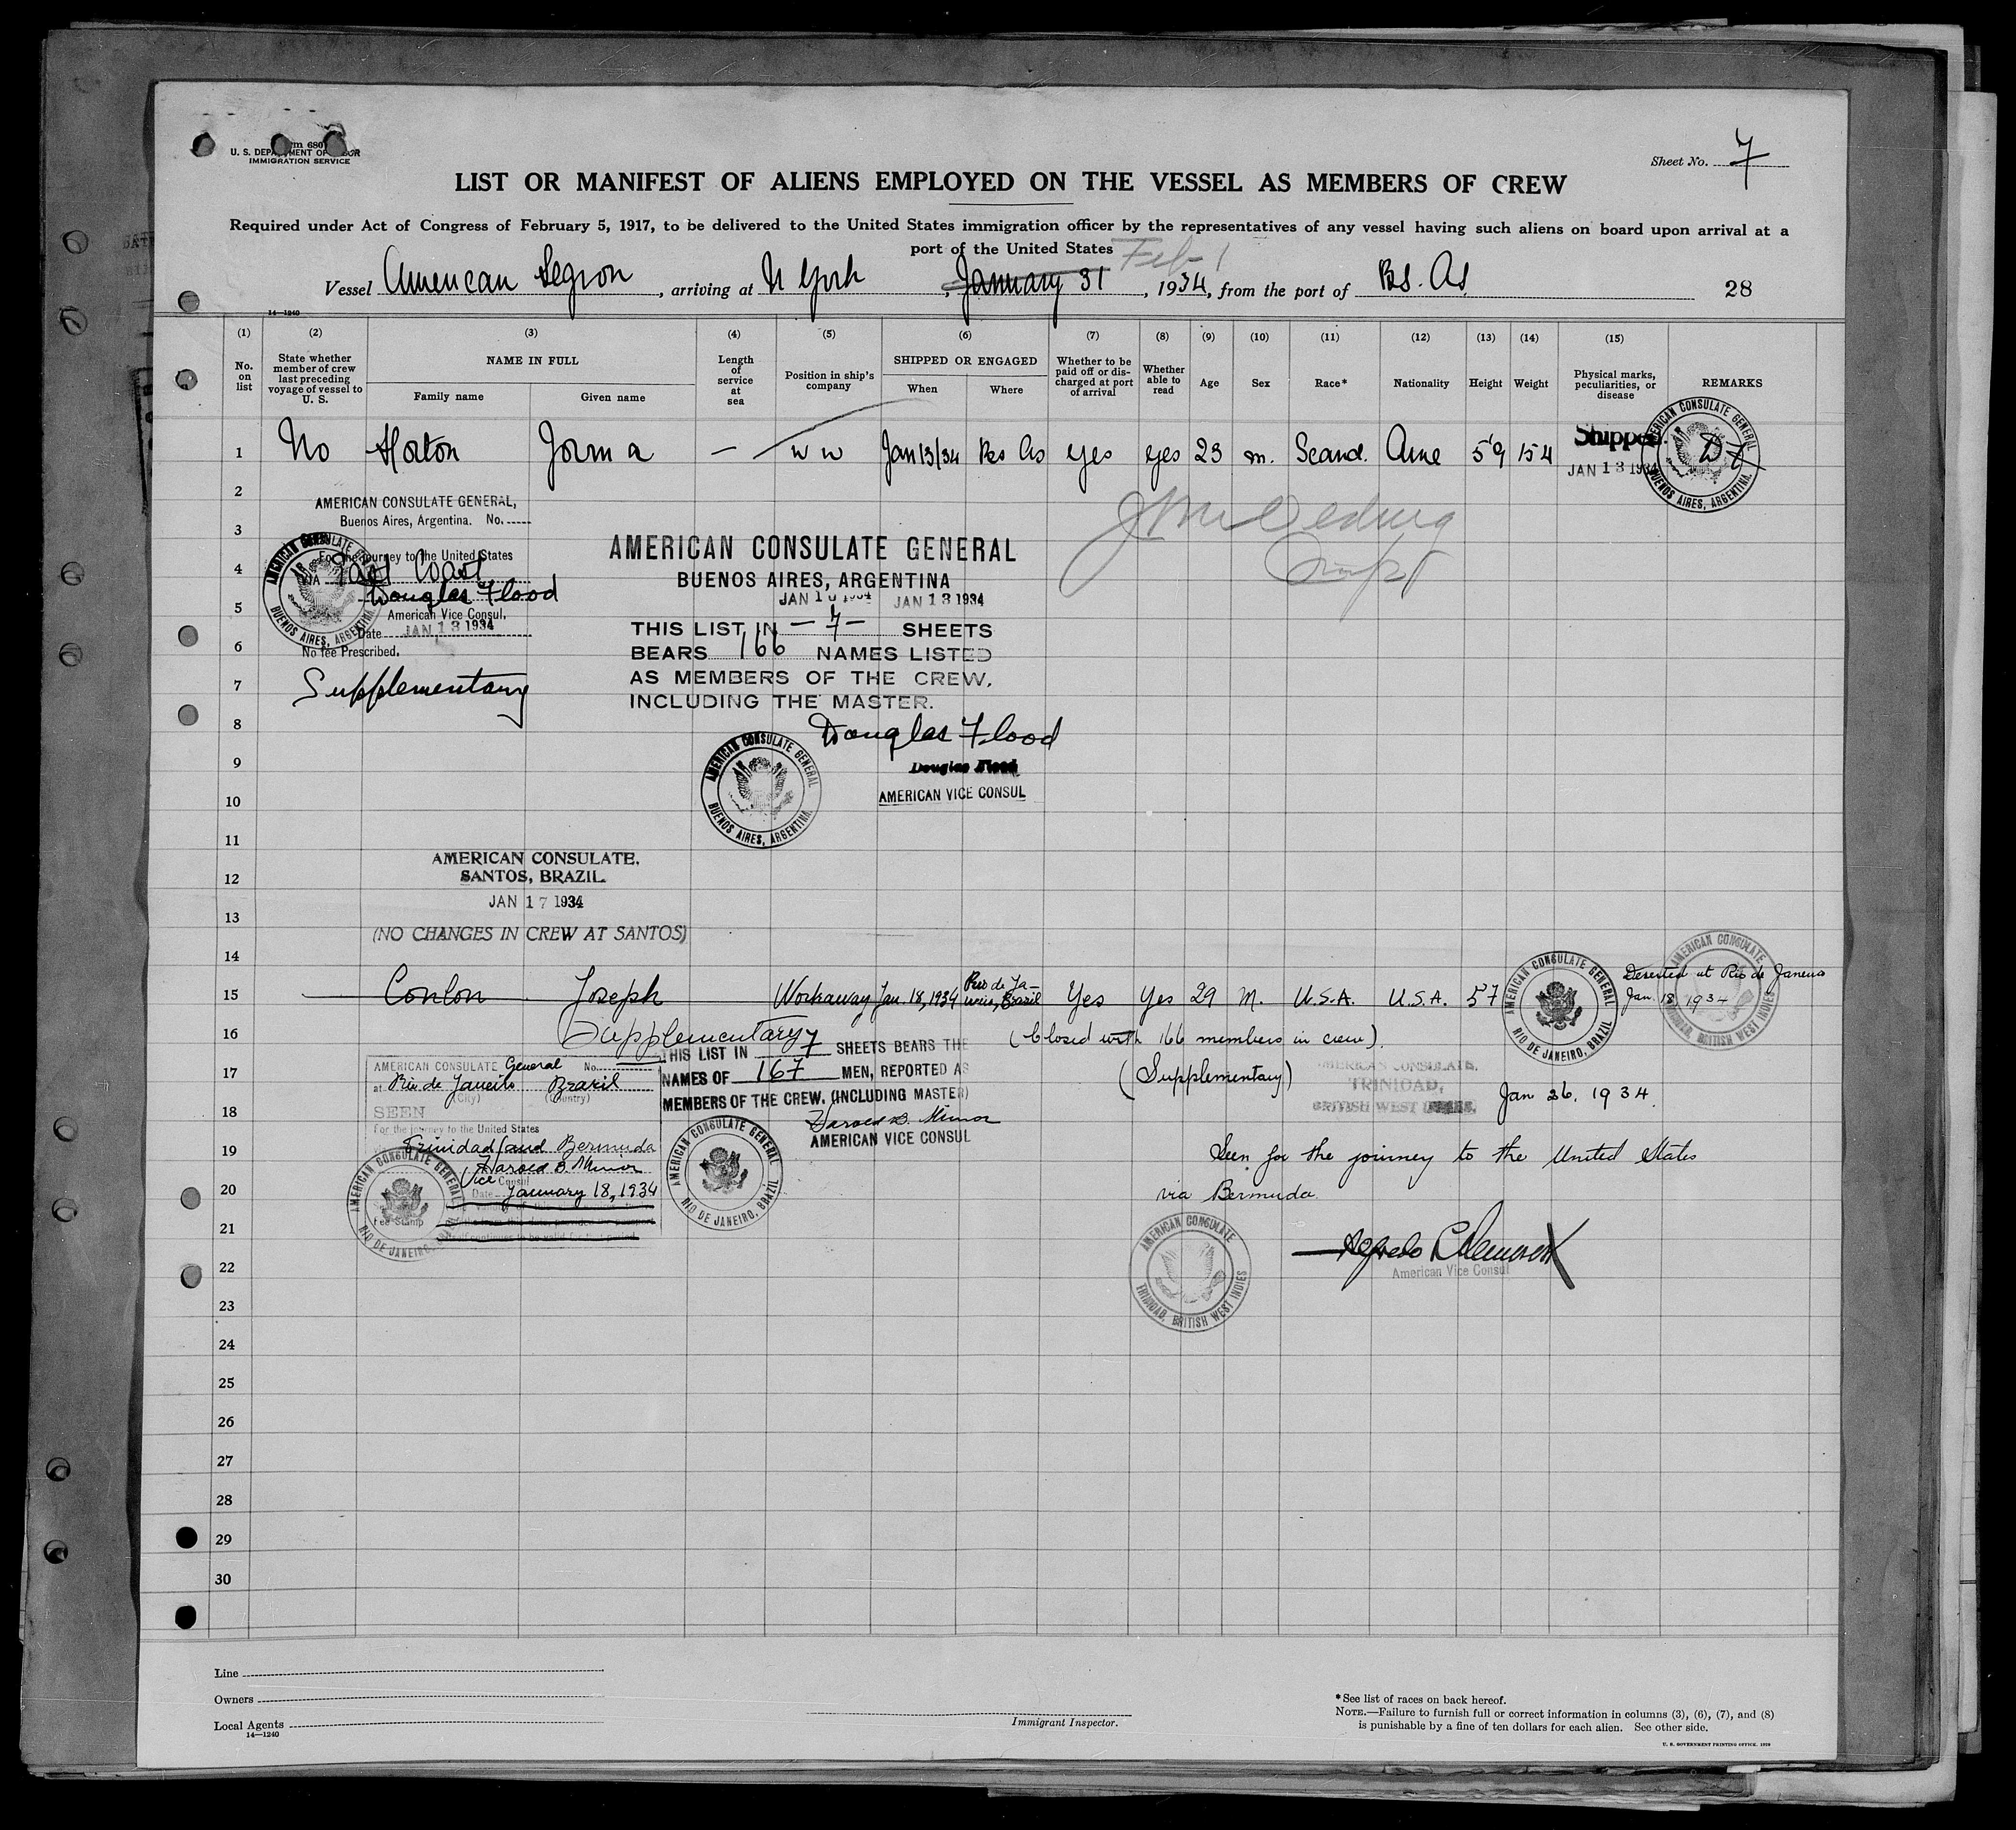 Form 680
U. S. DEPARTMENT OF LABOR
IMMIGRATION SERVICE
Sheet No. 7
LIST OR MANIFEST OF ALIENS EMPLOYED ON THE VESSEL AS MEMBERS OF CREW
Required under Act of Congress of February 5, 1917, to be delivered to the United States immigration officer by the representatives of any vessel having such aliens on board upon arrival at a
port of the United States
Feb 1
Vessel American Legion, arriving at N York, January 31, 1934, from the port of Bs. As. 28
14—1240
(1) (2) (3) (4) (5) (6) (7) (8) (9) (10) (11) (12) (13) (14) (15)
No. on list
State whether member of crew last preceding voyage of vessel to U. S.
NAME IN FULL
Family name Given name
Length of service at sea
Position in ship's company
SHIPPED OR ENGAGED
When Where
Whether to be paid off or discharged at port of arrival
Whether able to read
Age
Sex
Race*
Nationality
Height
Weight
Physical marks, peculiarities, or disease
REMARKS
1 No Horton Jorma — W W Jan 13/34 Bs As yes yes 23 m. Scand. Ame 5'9 154
Shipped.
JAN 13 1934
AMERICAN CONSULATE GENERAL
BUENOS AIRES, ARGENTINA
DF
2
AMERICAN CONSULATE GENERAL,
Buenos Aires, Argentina. No.
3
For the journey to the United States
4
VIA East Coast
Douglas Flood
5
American Vice Consul.
Date JAN 13 1934
6
No fee Prescribed.
AMERICAN CONSULATE GENERAL
BUENOS AIRES, ARGENTINA
7
Supplementary
AMERICAN CONSULATE GENERAL
BUENOS AIRES, ARGENTINA
JAN 13 1934
THIS LIST IN — 7 — SHEETS
BEARS 166 NAMES LISTED
AS MEMBERS OF THE CREW,
INCLUDING THE MASTER.
8
Douglas Flood
9
Douglas Flood
10
AMERICAN VICE CONSUL
AMERICAN CONSULATE GENERAL
BUENOS AIRES, ARGENTINA
11
AMERICAN CONSULATE,
12
SANTOS, BRAZIL.
JAN 17 1934
13
(NO CHANGES IN CREW AT SANTOS)
14
15 Conlon Joseph Workaway Jan. 18, 1934 Rio de Janeiro, Brazil Yes Yes 29 M. U.S.A. U.S.A. 57
AMERICAN CONSULATE GENERAL
RIO DE JANEIRO, BRAZIL
Deserted at Rio de Janeiro
Jan. 18, 1934
AMERICAN CONSULATE
TRINIDAD, BRITISH WEST INDIES
16
Supplementary
(Closed with 166 members in crew).
THIS LIST IN 7 SHEETS BEARS THE
NAMES OF 167 MEN, REPORTED AS
MEMBERS OF THE CREW. (INCLUDING MASTER)
Harold B. Minor
AMERICAN VICE CONSUL
AMERICAN CONSULATE GENERAL
RIO DE JANEIRO, BRAZIL
AMERICAN CONSULATE General No.
17
at Rio de Janeiro Brazil
(City) (Country)
18
SEEN
For the journey to the United States
19
Trinidad and Bermuda
Harold B. Minor
Vice Consul
20
Date January 18, 1934
Fee Stamp
21
AMERICAN CONSULATE GENERAL
RIO DE JANEIRO,
(Supplementary)
AMERICAN CONSULATE,
TRINIDAD,
BRITISH WEST INDIES.
Jan 26, 1934.
Seen for the journey to the United States
via Bermuda.
American Vice Consul
AMERICAN CONSULATE
TRINIDAD, BRITISH WEST INDIES
22
23
24
25
26
27
28
29
30
Line
Owners
Local Agents
14—1240
Immigrant Inspector.
*See list of races on back hereof.
NOTE.—Failure to furnish full or correct information in columns (3), (6), (7), and (8)
is punishable by a fine of ten dollars for each alien. See other side.
U. S. GOVERNMENT PRINTING OFFICE. 1929